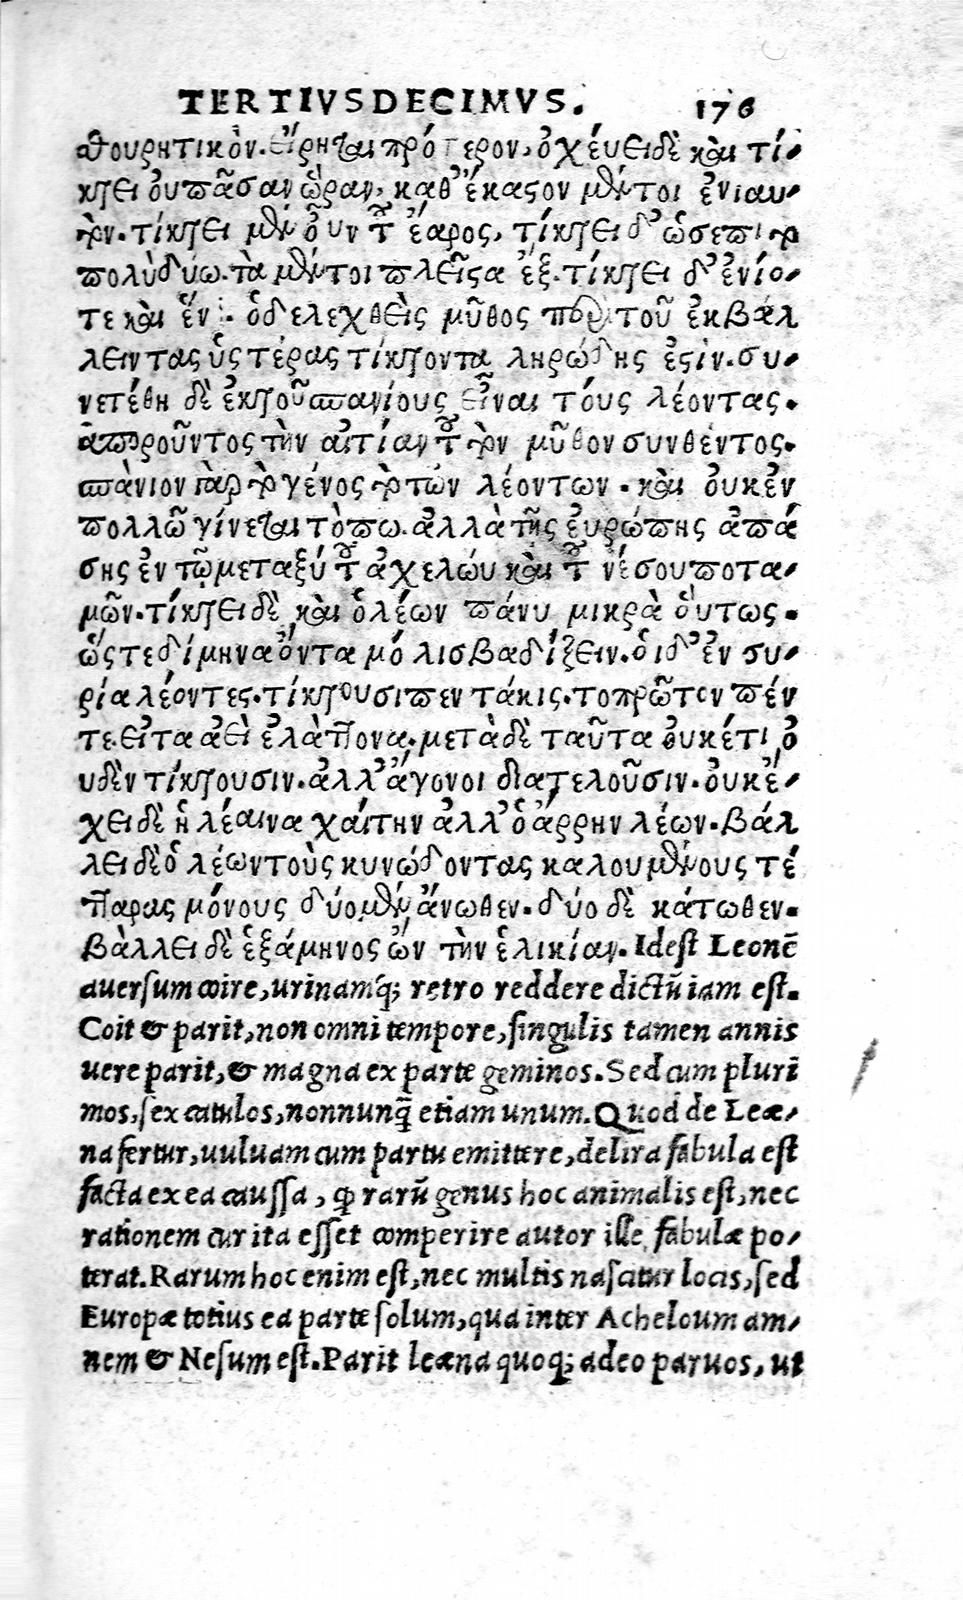 TERTIVSDECIMVS. 176
θουρητικὸν. εἴρηται πρότερον, ὀχέυει δὲ καὶ τί-
κτει ὀυ πᾶσαν ὥραν, καθ' ἕκαστον μέντοι ἐνιαυ-
τὸν. τίκτει μὲν ὀυν τοῦ ἔαρος, τίκτει δ' ὡσεπι το
πολὺ δύω. τὰ μέντοι πλεῖστα ἑξ. τίκτει δ' ἐνίο-
τε καὶ ἕν. ὁ δε λεχθεὶς μῦθος περὶ τοῦ ἐκβάλ
λειν τας ὑστέρας τίκτοντα ληρώδης ἐστίν. συ-
νετέθη δὲ ἐκ τοῦ σπανίους εἶναι τόυς λέοντας.
ἀποροῦντος τὴν αἰτίαν τοῦ τὸν μῦθον συνθέντος.
σπάνιον γὰρ τὸ γένος τὸ τῶν λέοντων. καὶ ὀυκ ἐν
πολλῶ γίνεται τὸπω. ἀλλὰ τῆς ἐυρώπης ἁπά
σης ἐν τῷ μεταξύ τοῦ ἀχελώυ καὶ τοῦ νέσου ποτα-
μῶν. τίκτει δὲ καὶ ὁ λέων πάνυ μικρὰ ὁύτως.
ὥςτε δίμηνα ὄντα μόλις βαδίζειν. ὁι δ' ἐν συ-
ρία λέοντες. τίκτουσι πεντάκις. το πρῶτον πέν
τε. εἶτα ἀεὶ ἐλὰττονα. μετὰ δὲ ταῦτα ὀυκέτι ὀ
υδὲν τίκτουσιν. ἀλλ' ἄγονοι διατελοῦσιν. ὀυκ ἔ-
χει δὲ ἡ λέαινα χαίτην ἀλλ' ὁ ἄρρην λέων. βάλ
λει δὲ ὁ λέων τοὺς κυνώδοντας καλουμένους τέ
τταρας μόνους δύο μὲν ἄνωθεν. δύο δὲ κάτωθεν.
βὰλλει δὲ ἑξάμηνος ὢν τὴν ἑλικίαν. Idest Leonē
auersum coire, urinamq́; retro reddere dictū iam est.
Coit & parit, non omni tempore, singulis tamen annis
uere parit, & magna ex parte geminos. Sed cum plurī
mos, sex catulos, nonnunq̄ etiam unum. Quod de Leæ-
na fertur, uuluam cum partu emittere, delira fabula est
facta ex ea caussa, ꝙ rarū genus hoc animalis est, nec
rationem cur ita esset comperire autor ille fabulæ po-
terat. Rarum hoc enim est, nec multis nascitur locis, sed
Europæ totius ea parte solum, qua inter Acheloum am-
nem & Nesum est. Parit leæna quoq; adeo paruos, ut